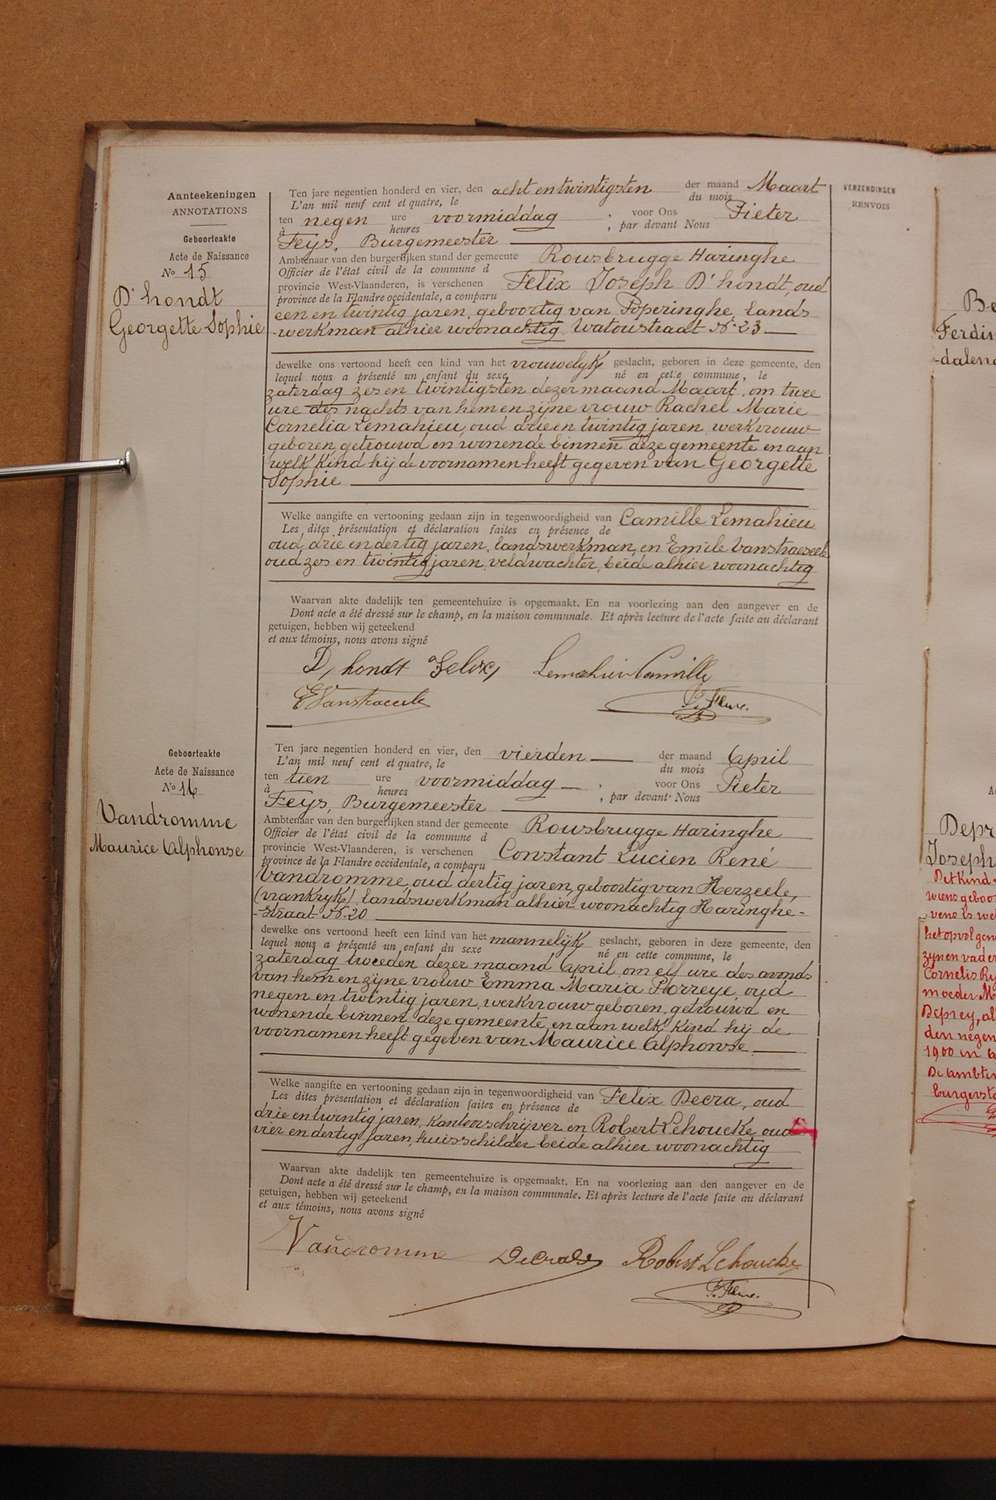 Aanteekeningen
ANNOTATIONS
VERZENDINGEN
RENVOIS
Geboorteakte
Acte de Naissance
No 15
D'hondt
Georgette Sophie
Ten jare negentien honderd en vier, den acht en twintigsten der maand Maart
L'an mil neuf cent et quatre, le du mois
ten negen ure voormiddag ; voor Ons Pieter
à heures , par devant Nous
Feys, Burgemeester
Ambtenaar van den burgerlijken stand der gemeente Rousbrugge Haringhe
Officier de l'état civil de la commune d
provincie West-Vlaanderen, is verschenen Felix Joseph D'hondt, oud
province de la Flandre occidentale, a comparu
een en twintig jaren, geboortig van Poperinghe, lands
-werkman alhier woonachtig, Watoustraat No 23
dewelke ons vertoond heeft een kind van het vrouwelyk geslacht, geboren in deze gemeente, den
lequel nous a présenté un enfant du sexe né en cette commune, le
zaterdag zes en twintigsten dezer maand Maart, om twee
ure des nachts van hem en zijne vrouw Rachel Marie
Cornelia Lemahieu, oud drie en twintig jaren, werkvrouw
geboren getrouwd en wonende binnen deze gemeente en aan
welk kind hij de voornamen heeft gegeven van Georgette
Sophie
Welke aangifte en vertooning gedaan zijn in tegenwoordigheid van Camille Lemahieu
Les dites présentation et déclaration faites en présence de
oud drie en dertig jaren, landswerkman, en Emile Vanstraeseele
oud zes en twintig jaren, veldwachter, beide alhier woonachtig
Waarvan akte dadelijk ten gemeentehuize is opgemaakt. En na voorlezing aan den aangever en de
Dont acte a été dressé sur le champ, en la maison communale. Et après lecture de l'acte faite au déclarant
getuigen, hebben wij geteekend
et aux témoins, nous avons signé
D'hondt Felix Lemahieu Camille
Geboorteakte
Acte de Naissance
No 16
Vandromme
Maurice Alphonse
Ten jare negentien honderd en vier, den vierden der maand April
L'an mil neuf cent et quatre, le du mois
ten tien ure voormiddag ; voor Ons Pieter
à heures , par devant Nous
Feys, Burgemeester
Ambtenaar van den burgerlijken stand der gemeente Rousbrugge Haringhe
Officier de l'état civil de la commune d
provincie West-Vlaanderen, is verschenen Constant Lucien René
province de la Flandre occidentale, a comparu
Vandromme, oud dertig jaren, geboortig van Herzeele,
(vrankryk) landswerkman alhier woonachtig Haringhe-
-straat No 20
dewelke ons vertoond heeft een kind van het mannelijk geslacht, geboren in deze gemeente, den
lequel nous a présenté un enfant du sexe né en cette commune, le
zaterdag tweeden dezer maand April, om elf ure des avonds
van hem en zijne vrouw Emma Maria Plorreye, oud
negen en twintig jaren, werkvrouw geboren, getrouwd en
wonende binnen deze gemeente, en aan welk kind hij de
voornamen heeft gegeven van Maurice Alphonse
Welke aangifte en vertooning gedaan zijn in tegenwoordigheid van Felix Decra, oud
Les dites présentation et déclaration faites en présence de
drie en twintig jaren, kantoorschrijver en Robert Lehoucke, oud
vier en dertig jaren, huisschilder beide alhier woonachtig
Waarvan akte dadelijk ten gemeentehuize is opgemaakt. En na voorlezing aan den aangever en de
Dont acte a été dressé sur le champ, en la maison communale. Et après lecture de l'acte faite au déclarant
getuigen, hebben wij geteekend
et aux témoins, nous avons signé
Vandromme Robert Lehoucke
Ferdin
-dalena
Depr
Joseph
Dit kind
wiens geboor
het opvolgen
zijnen vader
Cornelis Ry
moeder M
Deprey, al
den negen
1900 in
De ambten
burgersta